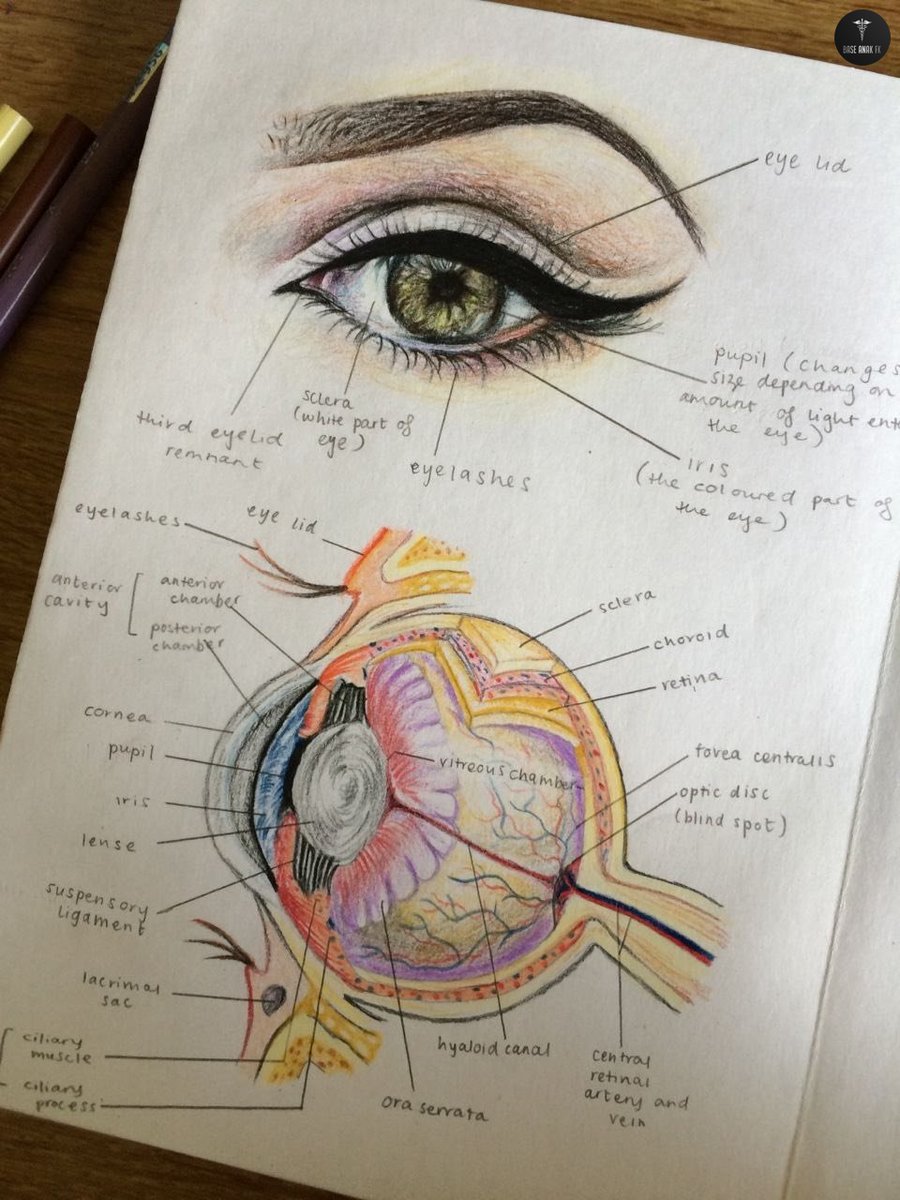 BASE ANAK FK
eye lid
pupil (changes
size depending on
amount of light ente
the eye)
sclera
(white part of
eye)
third eyelid
remnant
eyelashes
iris
(the coloured part of
the eye)
eyelashes
eye lid
anterior
cavity
anterior
chamber
posterior
chamber
sclera
choroid
retina
cornea
pupil
iris
lense
vitreous chamber
fovea centralis
optic disc
(blind spot)
suspensory
ligament
lacrimal
sac
ciliary
muscle
ciliary
process
hyaloid canal
ora serrata
central
retinal
artery and
vein